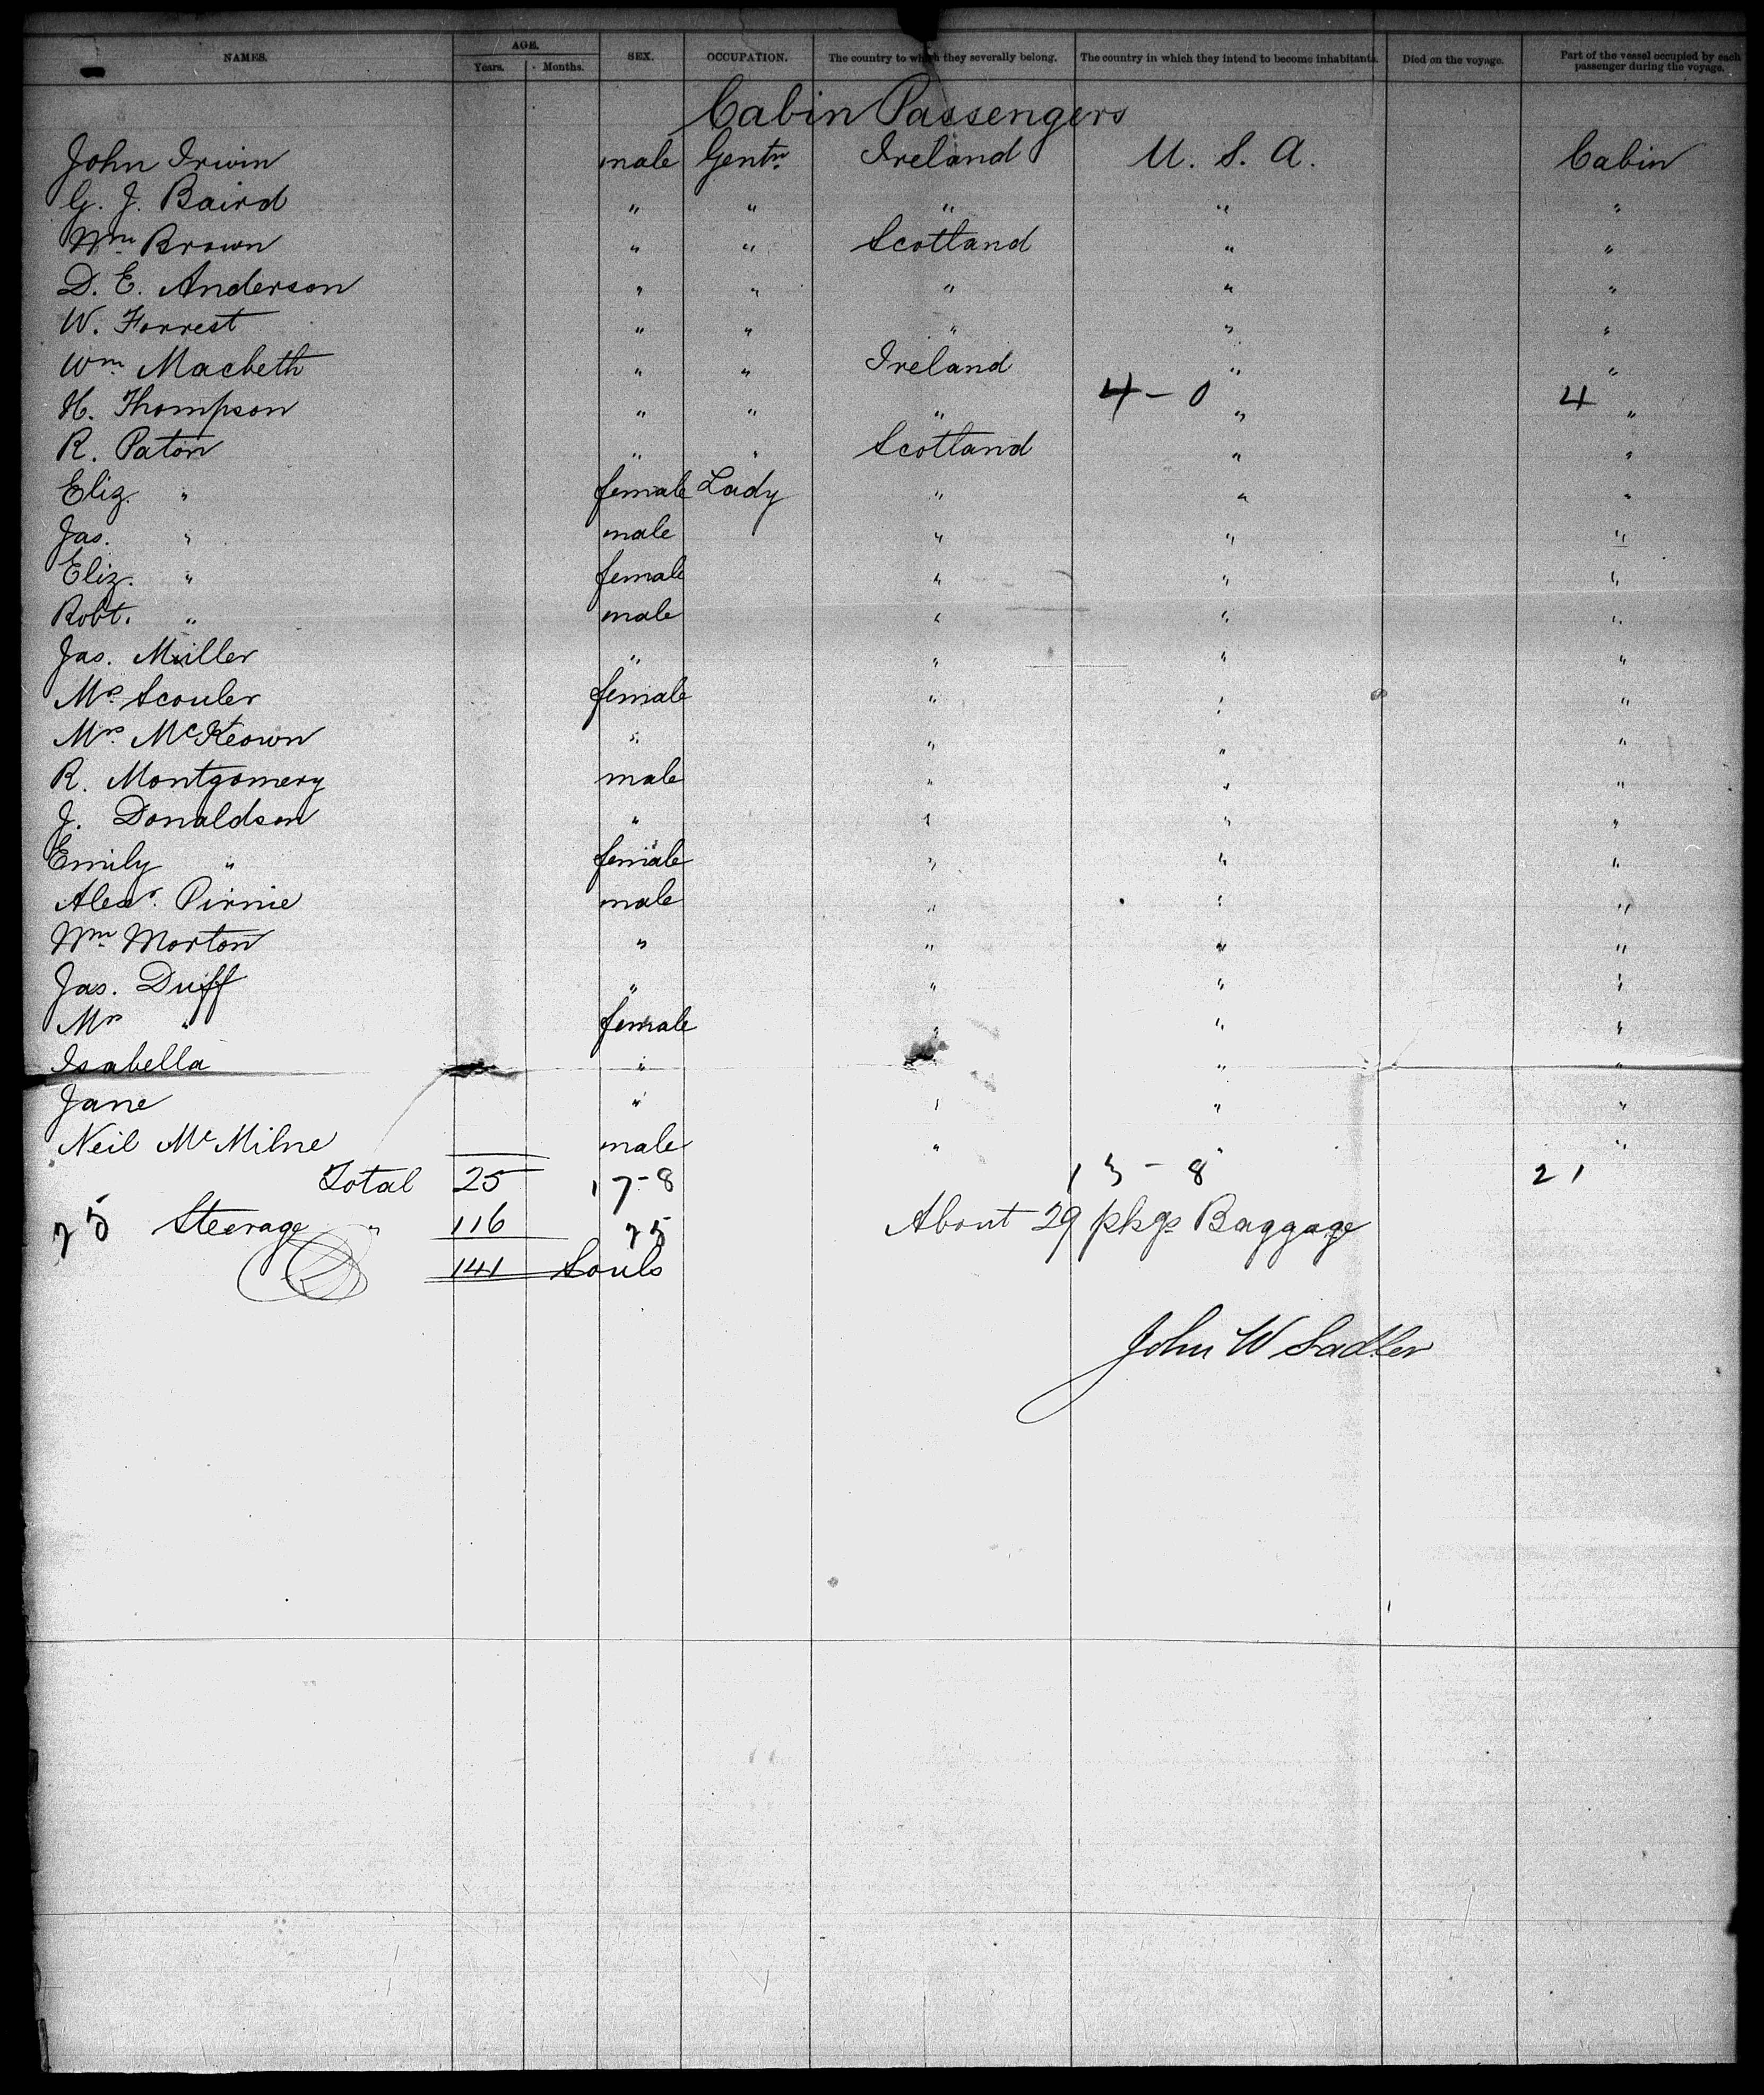 NAMES. AGE. SEX. OCCUPATION. The country to which they severally belong. The country in which they intend to become inhabitants. Died on the voyage. Part of the vessel occupied by each passenger during the voyage.
Years. Months.
Cabin Passengers
John Irwin male Gentn. Ireland U. S. A. Cabin
G. J. Baird " " " " "
Wm. Brown " " Scotland " "
D. E. Anderson " " " " "
W. Forrest " " " " "
Wm. Macbeth " " Ireland " "
4 - 0 4
H. Thompson " " " " "
R. Paton " " Scotland " "
Eliz. " female Lady " " "
Jas. " male " " "
Eliz. " female " " "
Robt. " male " " "
Jas. Miller " " " "
Mrs. Scouler female " " "
Mrs. McKeown " " " "
R. Montgomery male " " "
J. Donaldson " " " "
Emily " female " " "
Alexr. Pirnie male " " "
Wm. Morton " " " "
Jas. Duff " " " "
Mrs " female " " "
Isabella " " "
Jane " " " "
Neil McMilne male " " "
Total 25 17-8 13 - 8 21
25 Steerage " 116 25 About 29 pkgs Baggage
141 Souls
John W Sadler